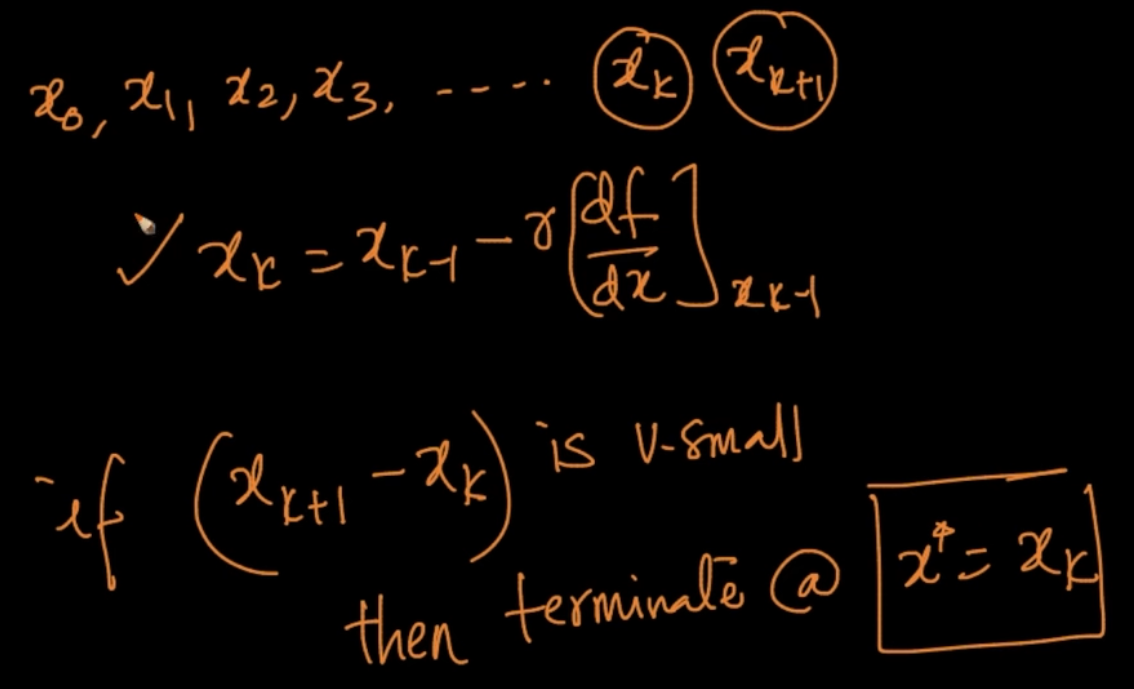 x₀, x₁, x₂, x₃, ----.. x_k x_{k+1}
✓ x_k = x_{k-1} - r [df/dx]_{x_{k-1}}
if (x_{k+1} - x_k) is v-small
then terminate @ x* = x_k